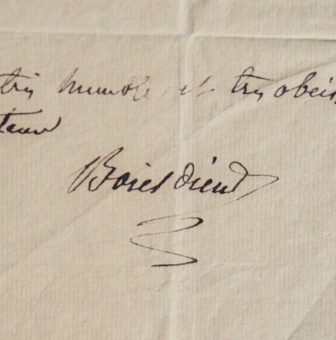 très humble et très obéis
Boieldieu